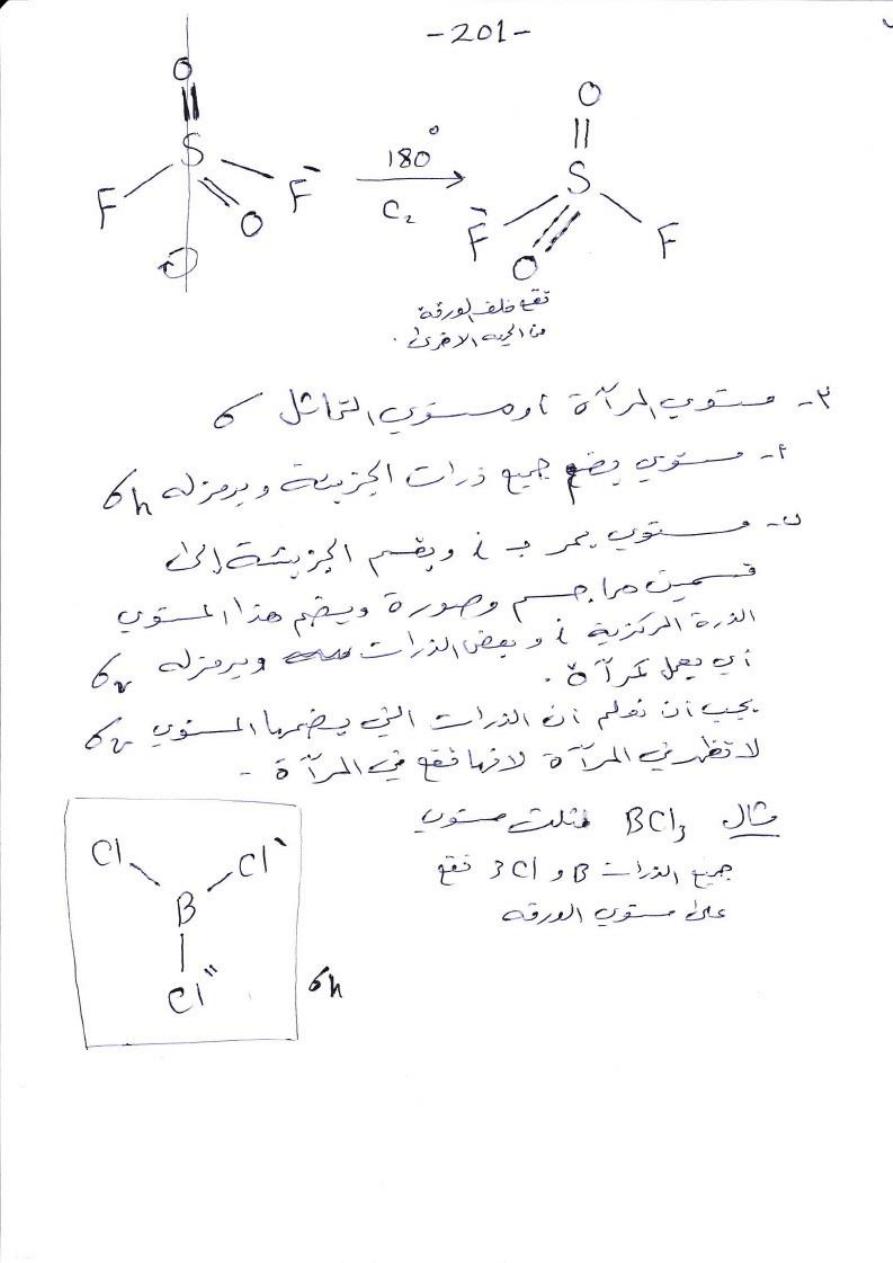 -201-
O
S
F
F̄
O
180°
C₂
O
S
F̄
F
O
تقع خلف الورقة
من الجهه الاخرى.
٣- مستوي المرآة أو مستوي التماثل σ
أ- مستوي يضم جميع ذرات الجزيئة ويرمز له σh
ب- مستوي يمر بـ i ويقسم الجزيئة إلى
قسمين هما جسم وصورة ويضم هذا المستوي
الذرة المركزية i وبعض الذرات ويرمز له σv
أي يعمل كمرآة.
يجب أن نعلم أن الذرات التي يضمها المستوي σv
لا تظهر في المرآة لانها تقع في المرآة -
مثال BCl₃ مثلث مستوي
جميع الذرات B و 3Cl تقع
على مستوي الورقه
Cl
Cl'
B
Cl''
σh